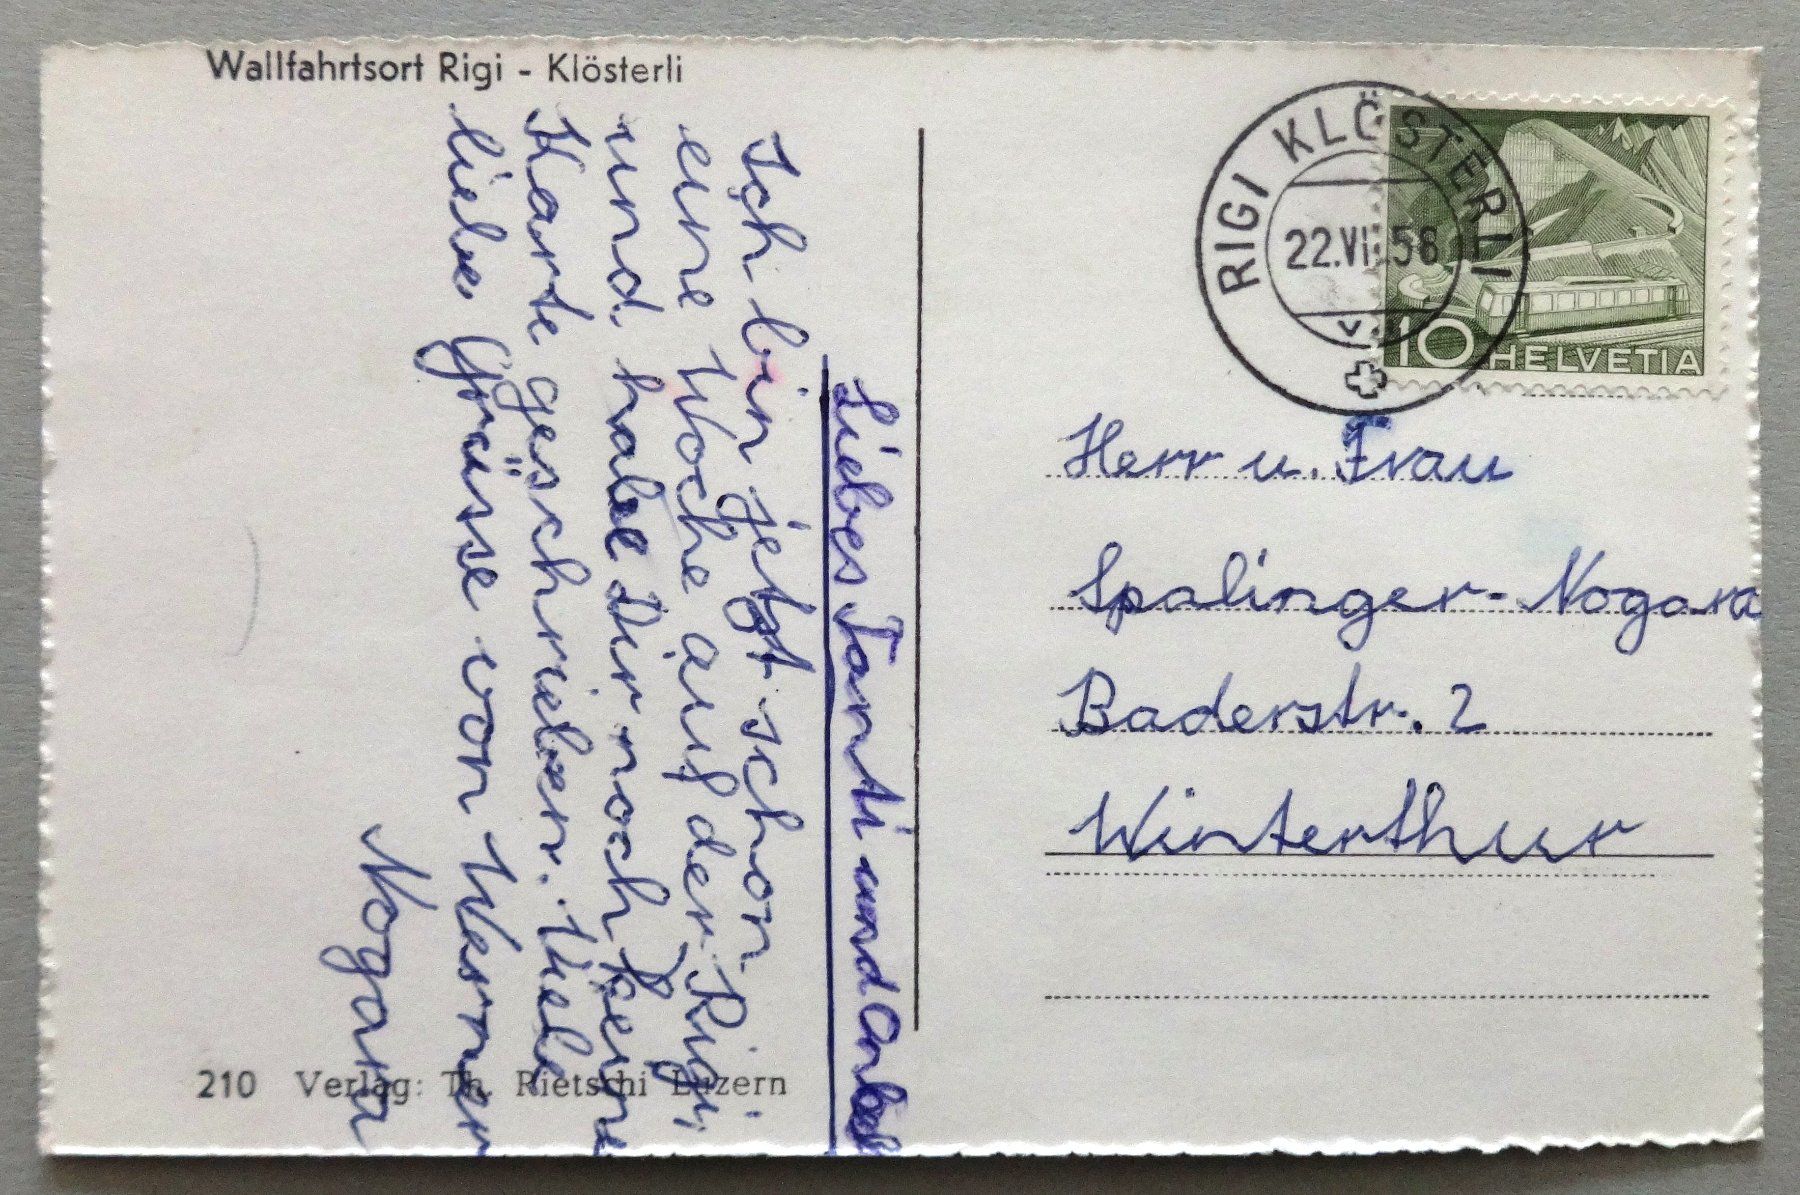 Wallfahrtsort Rigi - Klösterli
Liebes Tanti und Onkel
Ich bin jetzt schon
eine Woche auf der Rigi
und habe Dir noch keine
Karte geschrieben. Viele
liebe Grüsse von Werner
Nogara
210 Verlag: Th. Rietschi Luzern
RIGI KLÖSTERLI
22.VI 58
10 HELVETIA
Herr u. Frau
Spalinger-Nogara
Baderstr. 2
Winterthur